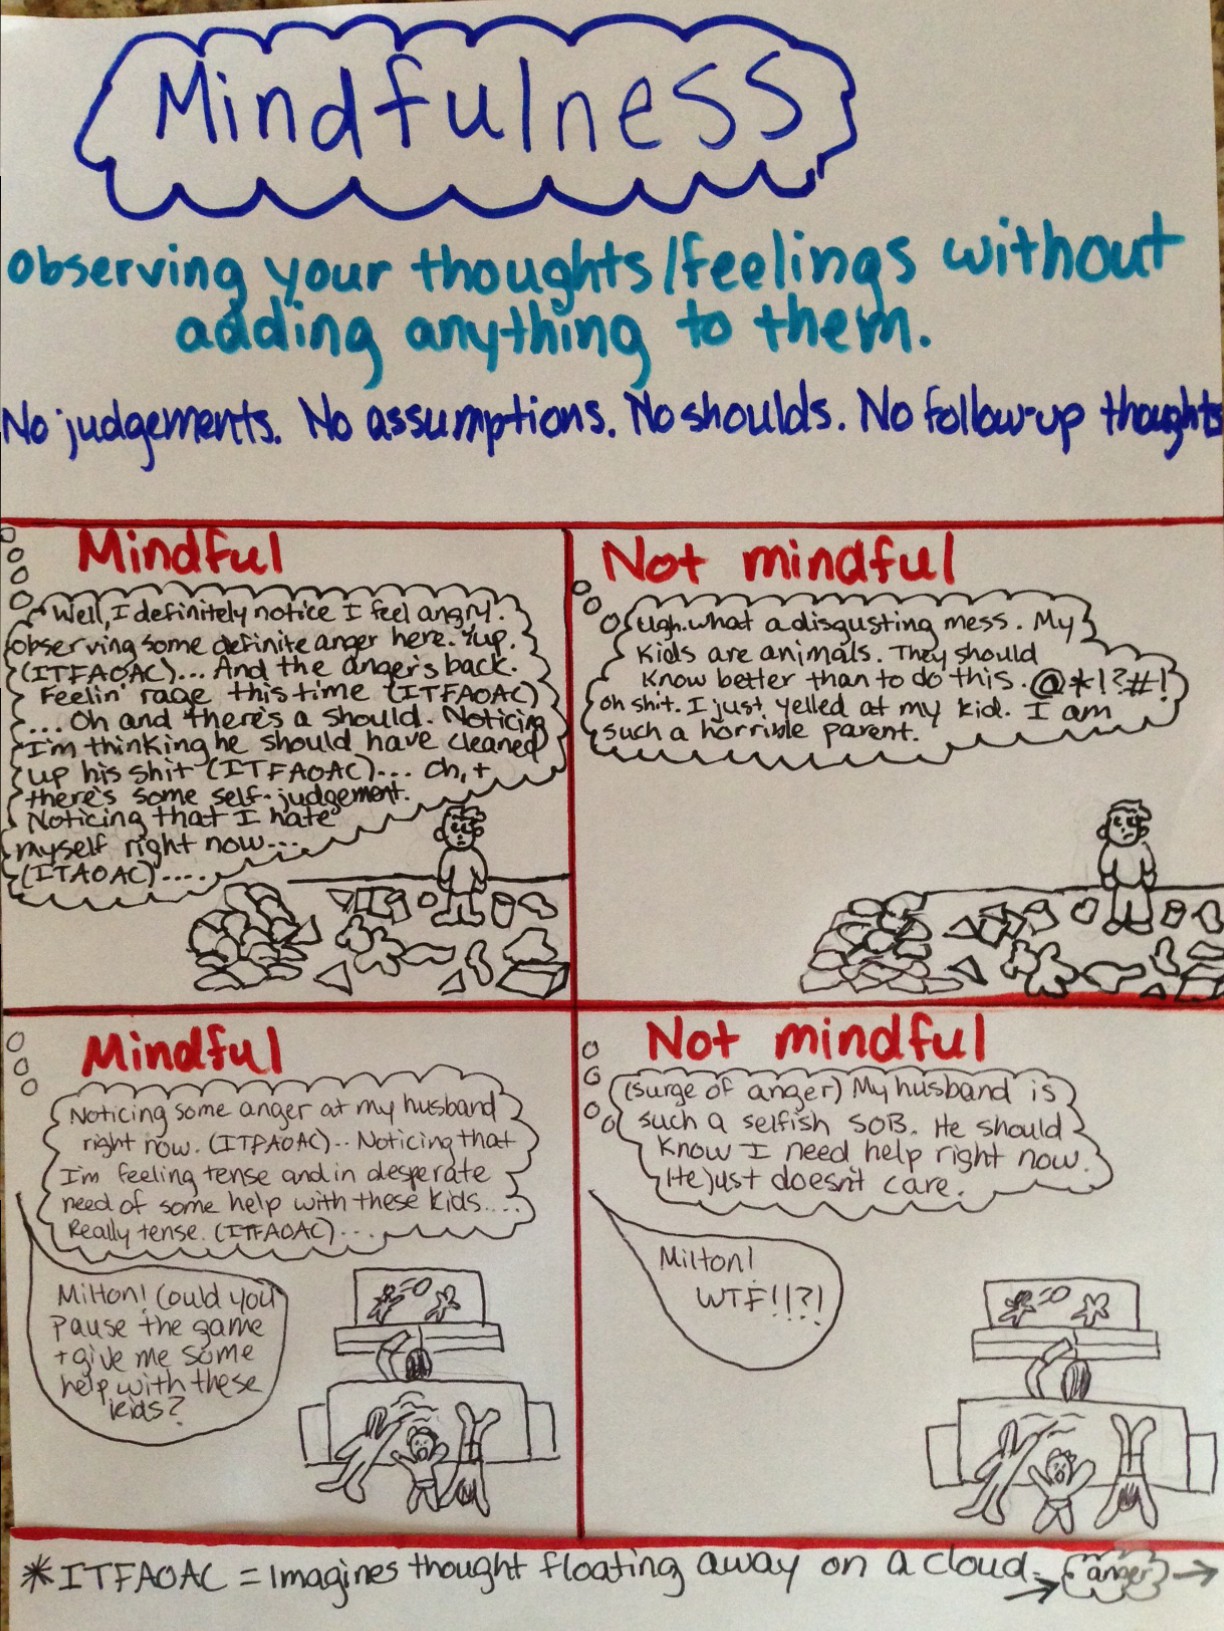 Mindfulness
observing your thoughts/feelings without
adding anything to them.
No judgements. No assumptions. No shoulds. No follow-up thoughts
Mindful
Well, I definitely notice I feel angry.
observing some definite anger here. Yup.
(ITFAOAC)... And the anger's back.
Feelin' rage this time (ITFAOAC)
... Oh and there's a should. Noticing
I'm thinking he should have cleaned
up his shit (ITFAOAC)... Oh, +
there's some self-judgement.
Noticing that I hate
myself right now...
(ITAOAC)....
Not mindful
Ugh. what a disgusting mess. My
kids are animals. They should
know better than to do this. @*!?#!
oh shit. I just yelled at my kid. I am
such a horrible parent.
Mindful
Noticing some anger at my husband
right now. (ITFAOAC)... Noticing that
I'm feeling tense and in desperate
need of some help with these kids....
Really tense. (ITFAOAC)...
Milton! Could you
pause the game
+ give me some
help with these
kids?
Not mindful
(surge of anger) My husband is
such a selfish SOB. He should
know I need help right now.
He just doesn't care.
Milton!
WTF!!?!
*ITFAOAC = Imagines thought floating away on a cloud. → anger →